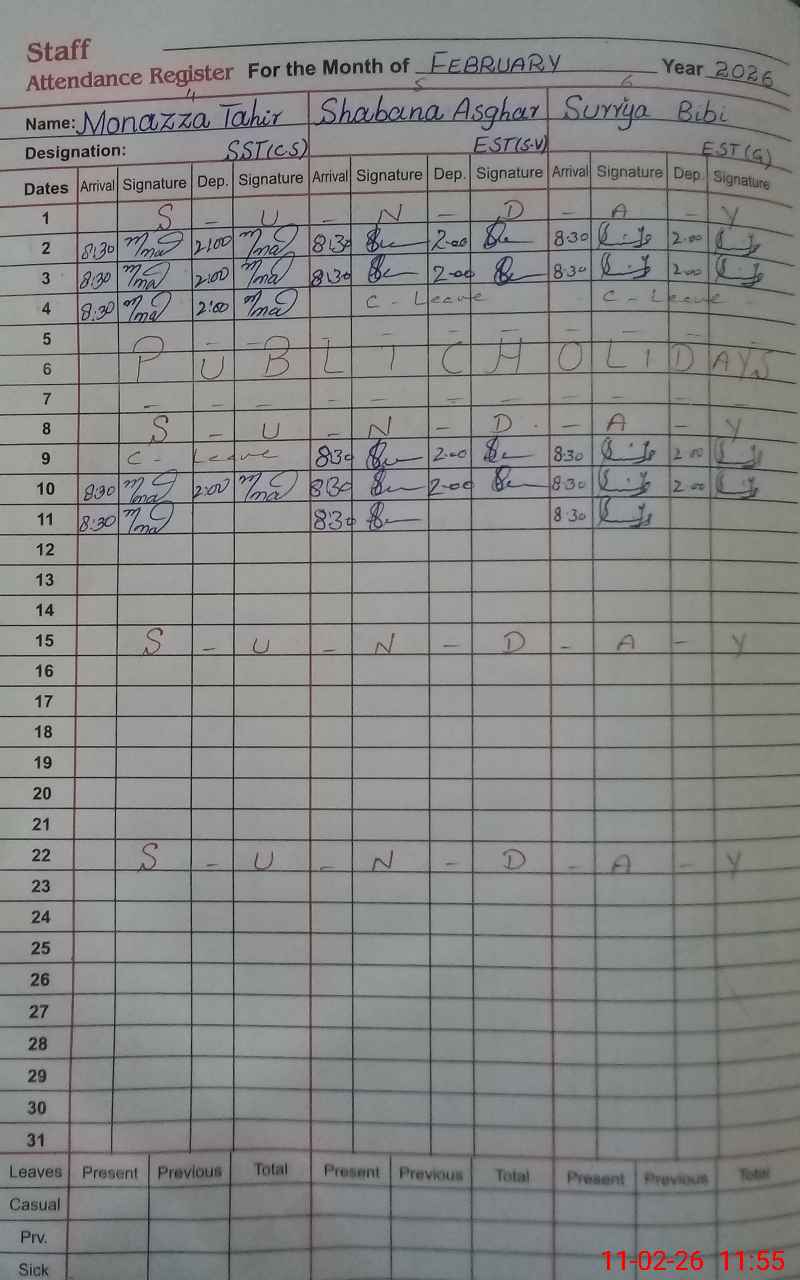 Staff
Attendance Register For the Month of FEBRUARY Year 2026
4 5 6
Name: Monazza Tahir Shabana Asghar Surriya Bibi
Designation: SST(CS) EST(S.V) EST(G)
Dates Arrival Signature Dep. Signature Arrival Signature Dep. Signature Arrival Signature Dep. Signature
1 S - U - N - D - A - Y
2 8:30 2:00 8:30 2.00 8.30 2.00
3 8:30 2:00 8:30 2.00 8.30 2.00
4 8:30 2:00 C - Leave C - Leave
5
6 PUBLIC HOLIDAYS
7
8 S - U - N - D - A - Y
9 C - Leave 8:30 2.00 8.30 2.00
10 8:30 2:00 8:30 2.00 8.30 2.00
11 8:30 8:30 8.30
12
13
14
15 S - U - N - D - A - Y
16
17
18
19
20
21
22 S - U - N - D - A - Y
23
24
25
26
27
28
29
30
31
Leaves Present Previous Total Present Previous Total Present Previous Total
Casual
Prv.
Sick
11-02-26 11:55